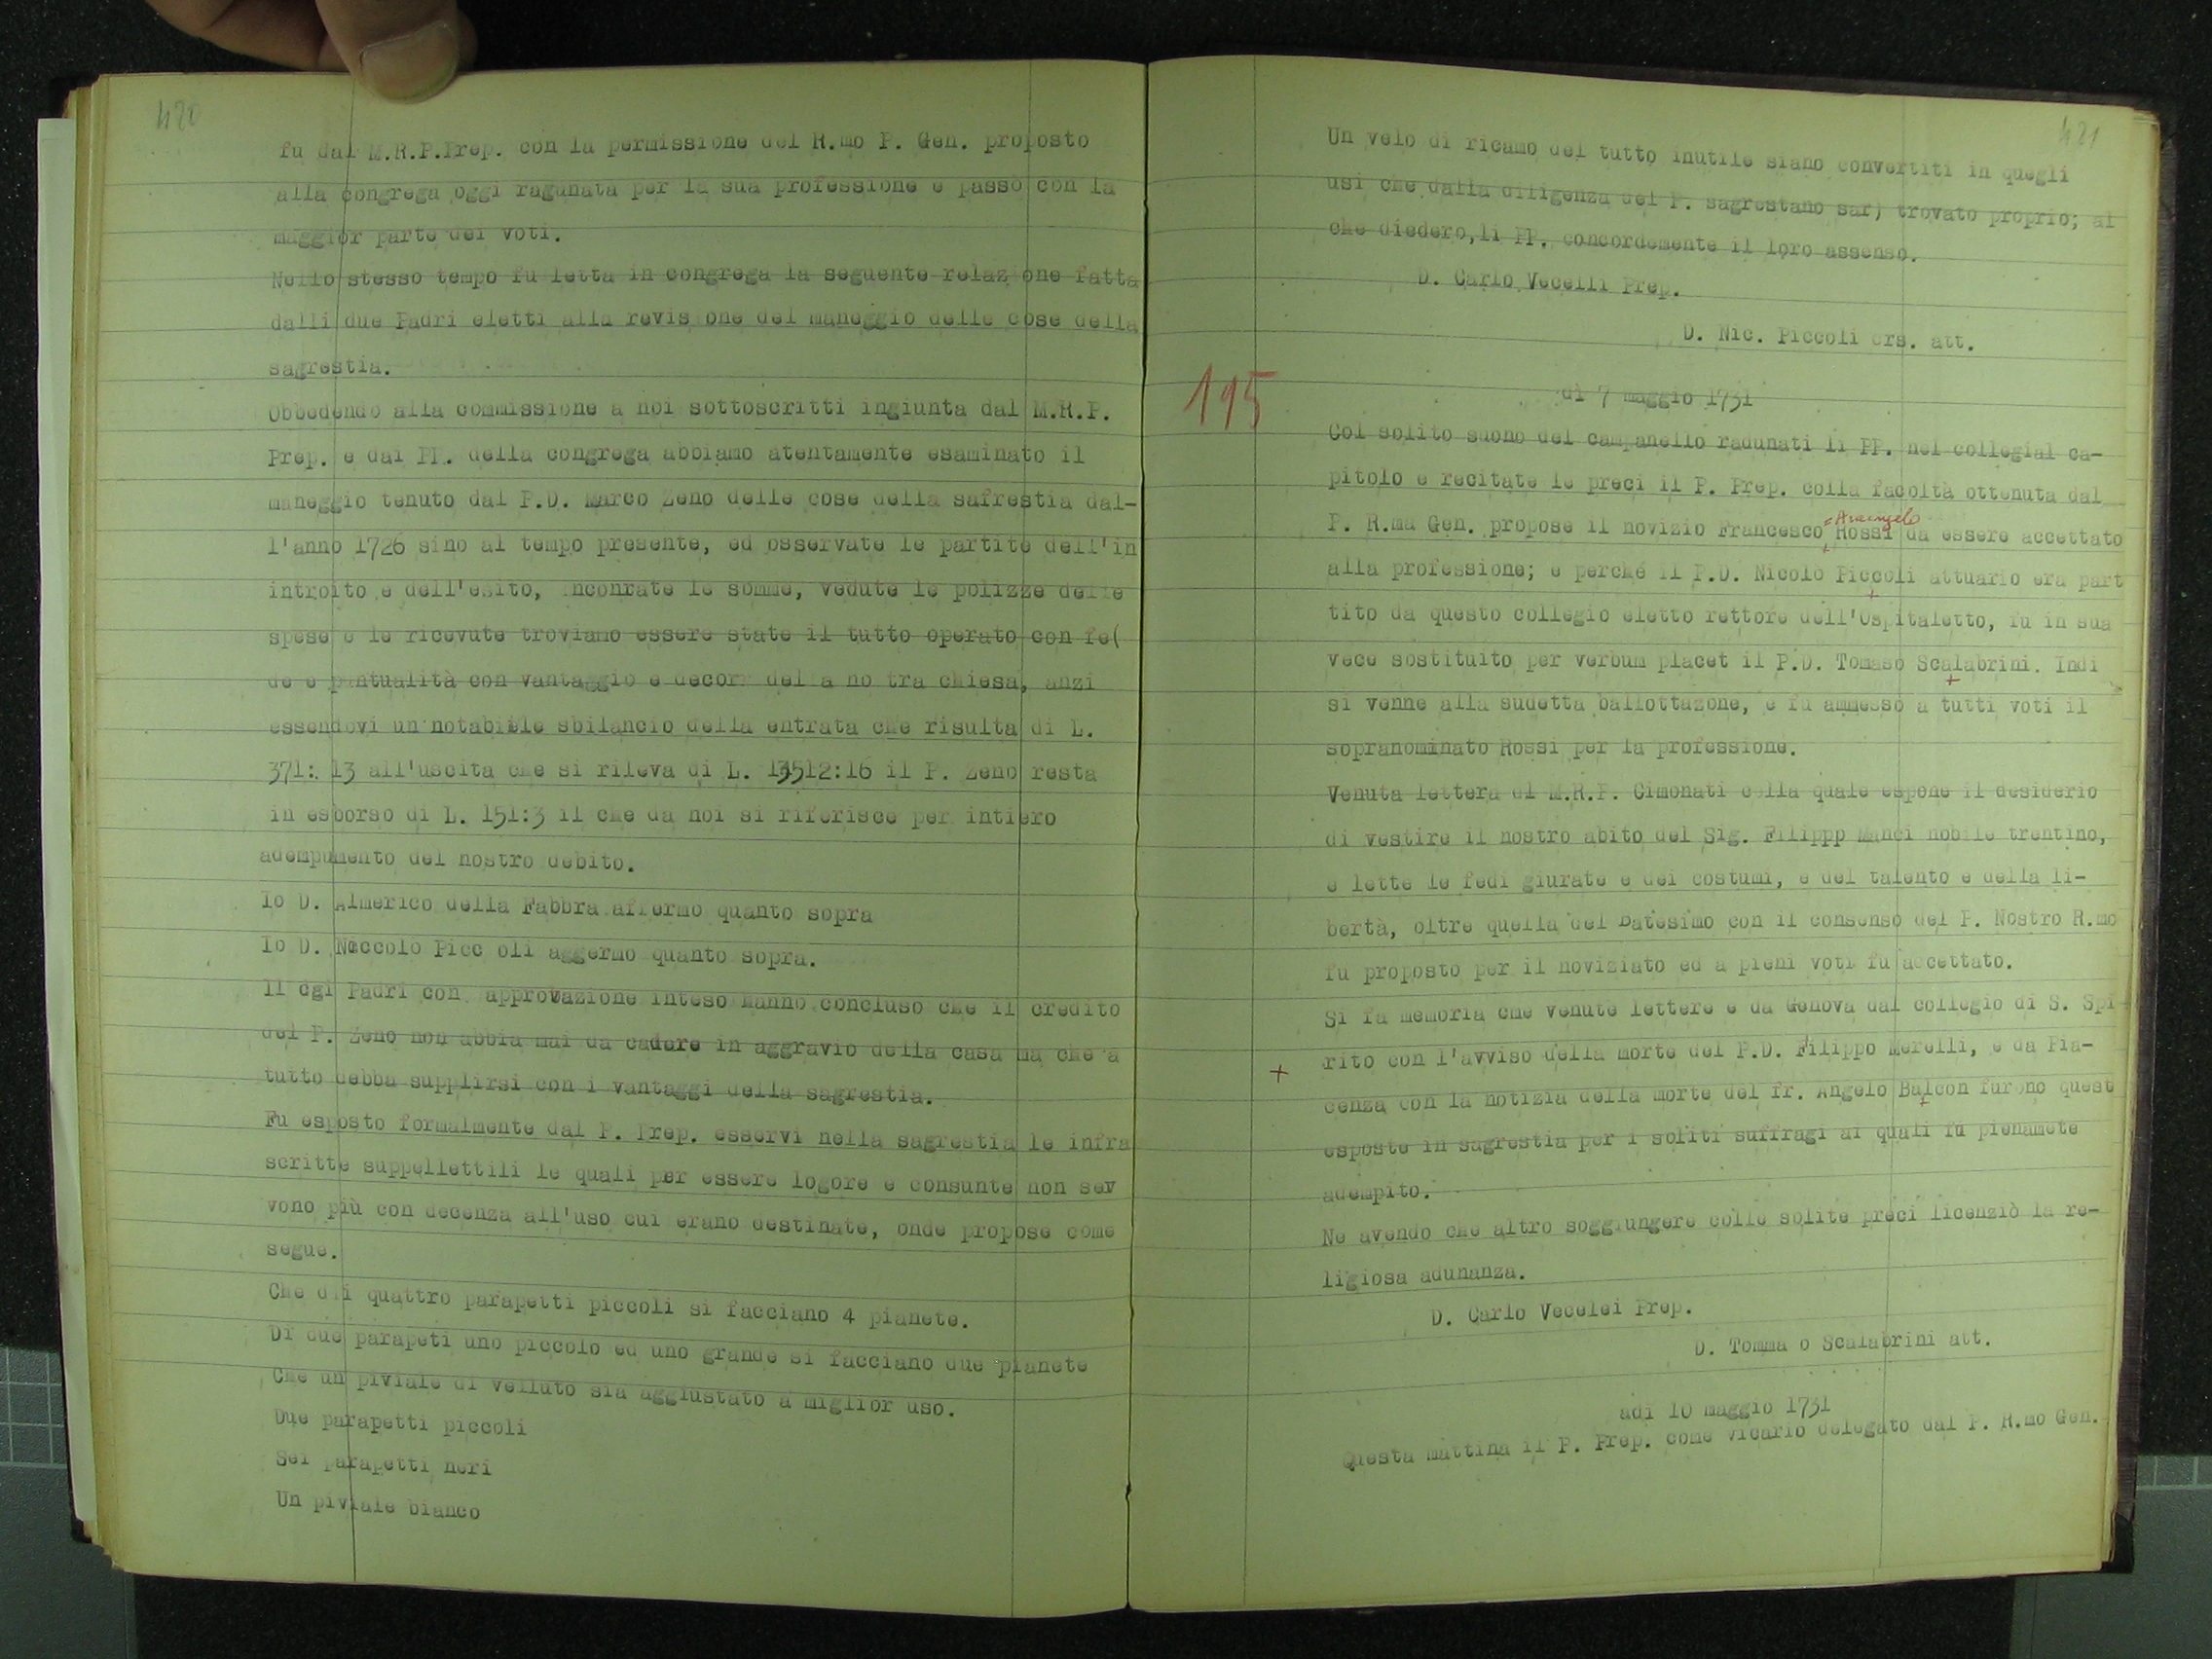 420
fu dal M.R.P.Prep. con la permissione del R.mo P. Gen. proposto
alla congrega oggi ragunata per la sua professione e passò con la
maggior parte dei voti.
Nello stesso tempo fu letta in congrega la seguente relaz one fatta
dalli due Padri eletti alla revis one del maneggio delle cose della
sagrestia.
Obbedendo alla commissione a noi sottoscritti ingiunta dal M.R.P.
Prep. e dai PP. della congrega abbiamo atentamente esaminato il
maneggio tenuto dal P.D. Marco Zeno delle cose della safrestia dal-
l'anno 1726 sino al tempo presente, ed osservate le partite dell'in
introito e dell'esito, inconrate le somme, vedute le polizze delle
spese e le ricevute troviamo essere state il tutto operato con fe(
de e puntualità con vantaggio e decor del a no tra chiesa, anzi
essendovi un notabile sbilancio della entrata che risulta di L.
371: 13 all'uscita che si rileva di L. 13512:16 il P. Zeno resta
in esborso di L. 151:3 il che da noi si riferisce per intiero
adempumento del nostro debito.
Io D. Almerico della Fabbra affermo quanto sopra
Io D. Niccolo Picc oli aggermo quanto sopra.
Il cgl Padri con approvazione inteso hanno concluso che il credito
del P. Zeno non abbia mai da cadere in aggravio della casa ma che a
tutto debba supplirsi con i vantaggi della sagrestia.
Fu esposto formalmente dal P. Prep. esservi nella sagrestia le infra
scritte suppellettili le quali per essere logore e consunte non ser
vono più con decenza all'uso cui erano destinate, onde propose come
segue.
Che d i quattro parapetti piccoli si facciano 4 pianete.
Di due parapeti uno piccolo ed uno grande si facciano due pianete
Che un piviale di velluto sia aggiustato a miglior uso.
Due parapetti piccoli
Sei parapetti neri
Un piviale bianco
421
Un velo di ricamo del tutto inutile siano convertiti in quegli
usi che dalla diligenza del P. sagrestano sar) trovato proprio; al
che diedero,li PP. concordemente il loro assenso.
D. Carlo Vecelli Prep.
D. Nic. Piccoli crs. att.
195
di 7 maggio 1731
Col solito suono del campanello radunati li PP. nel collegial ca-
pitolo e recitate le preci il P. Prep. colla facoltà ottenuta dal
= Arcangelo
P. R.ma Gen. propose il novizio Francesco Rossi da essere accettato
alla professione; e perché il P.D. Nicolò Piccoli attuario era part
tito da questo collegio eletto rettore dell'Ospitaletto, fu in sua
vece sostituito per verbum placet il P.D. Tomaso Scalabrini. Indi
si venne alla sudetta ballottazone, e fu ammesso a tutti voti il
sopranominato Rossi per la professione.
Venuta lettera el M.R.P. Cimonati colla quale espone il desiderio
di vestire il nostro abito del Sig. Filippp Manci nobile trentino,
e lette le fedi giurate e dei costumi, e del talento e della li-
bertà, oltre quella del Batesimo con il consenso del P. Nostro R.mo
fu proposto per il noviziato ed a pieni voti fu accettato.
Si fa memoria che venute lettere e da Genova dal collegio di S. Spi
+ rito con l'avviso della morte del P.D. Filippo Merelli, e da Pia-
cenza con la notizia della morte del fr. Angelo Balcon furono quest
esposte in sagrestia per i soliti suffragi ai quali fu pienamete
adempito.
Ne avendo che altro soggiungere colle solite preci licenziò la re-
ligiosa adunanza.
D. Carlo Vecelei Prep.
D. Tomma o Scalabrini att.
adi 10 maggio 1731
Questa mattina il P. Prep. come vicario delegato dal P. R.mo Gen.